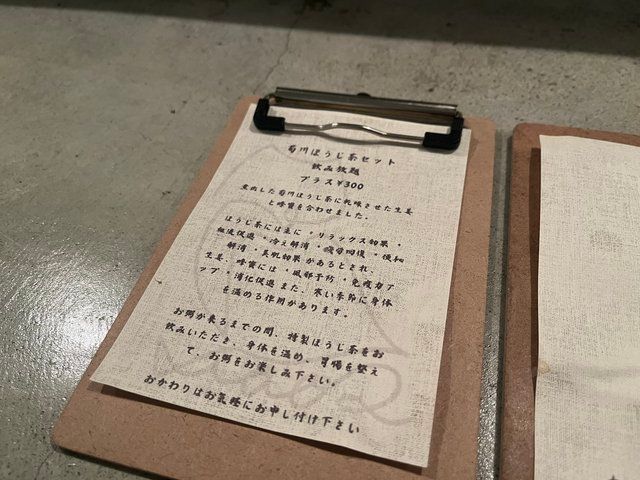 菊川ほうじ茶セット
飲み放題
プラス¥300
煮出した菊川ほうじ茶に乾燥させた生姜
と蜂蜜を合わせました。
ほうじ茶には主に・リラックス効果・
血流促進・冷え解消・疲労回復・緩和
解消・美肌効果があるとされ、
生姜、蜂蜜には・風邪予防・免疫力ア
ップ・消化促進また、寒い季節に身体
を温める作用があります。
お粥が来るまでの間、特製ほうじ茶をお
飲みいただき、身体を温め、胃腸を整え
て、お粥をお楽しみ下さい。
おかわりはお気軽にお申し付け下さい